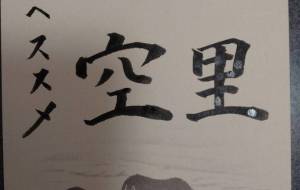 里空
ヘススメ